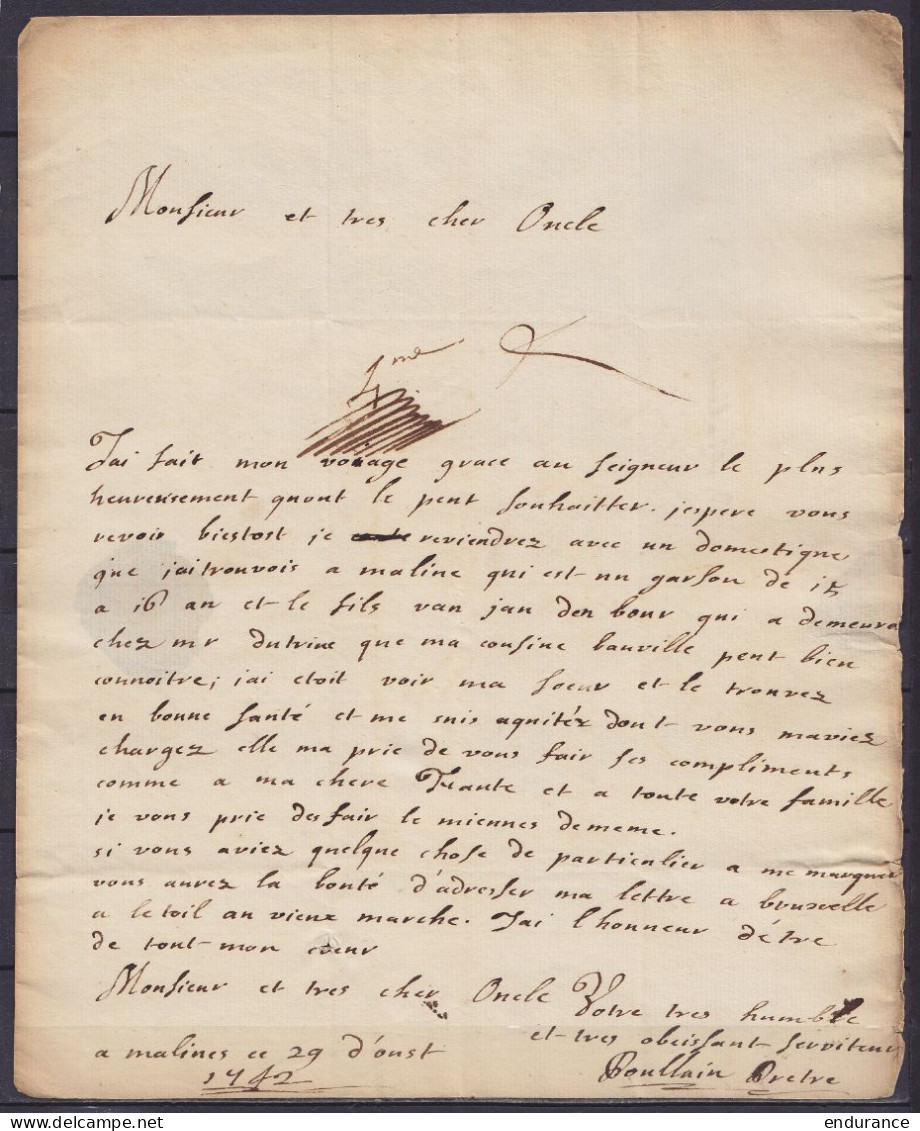 Monsieur et tres cher Oncle
4me
Jai fait mon voiage grace au seigneur le plus
heureusement quont le peut souhaitter. jespere vous
revoir biestost je reviendrez avec un domestique
que jaitrouvois a maline qui est un garson de 15
a 16 an et le fils van jan den bour qui a demeura
chez mr dutrixe que ma cousine bauville peut bien
connoitre; jai etoit voir ma soeur et le trouvez
en bonne santé et me suis aquitéz dont vous maviez
chargez elle ma prie de vous fair ses compliments
comme a ma chere Tante et a toute votre famille
je vous prie desfair le miennes dememe.
si vous aviez quelque chose de particulier a me marquer
vous aurez la bonté d'adresser ma lettre a bruxelle
a letoil au vieux marche. Jai l'honneur d'étre
de tout mon cœur
Monsieur et tres cher Oncle Votre tres humble
et tres obeissant serviteur
a malines ce 29 d'oust
1742
Poullain Pretre
endurance